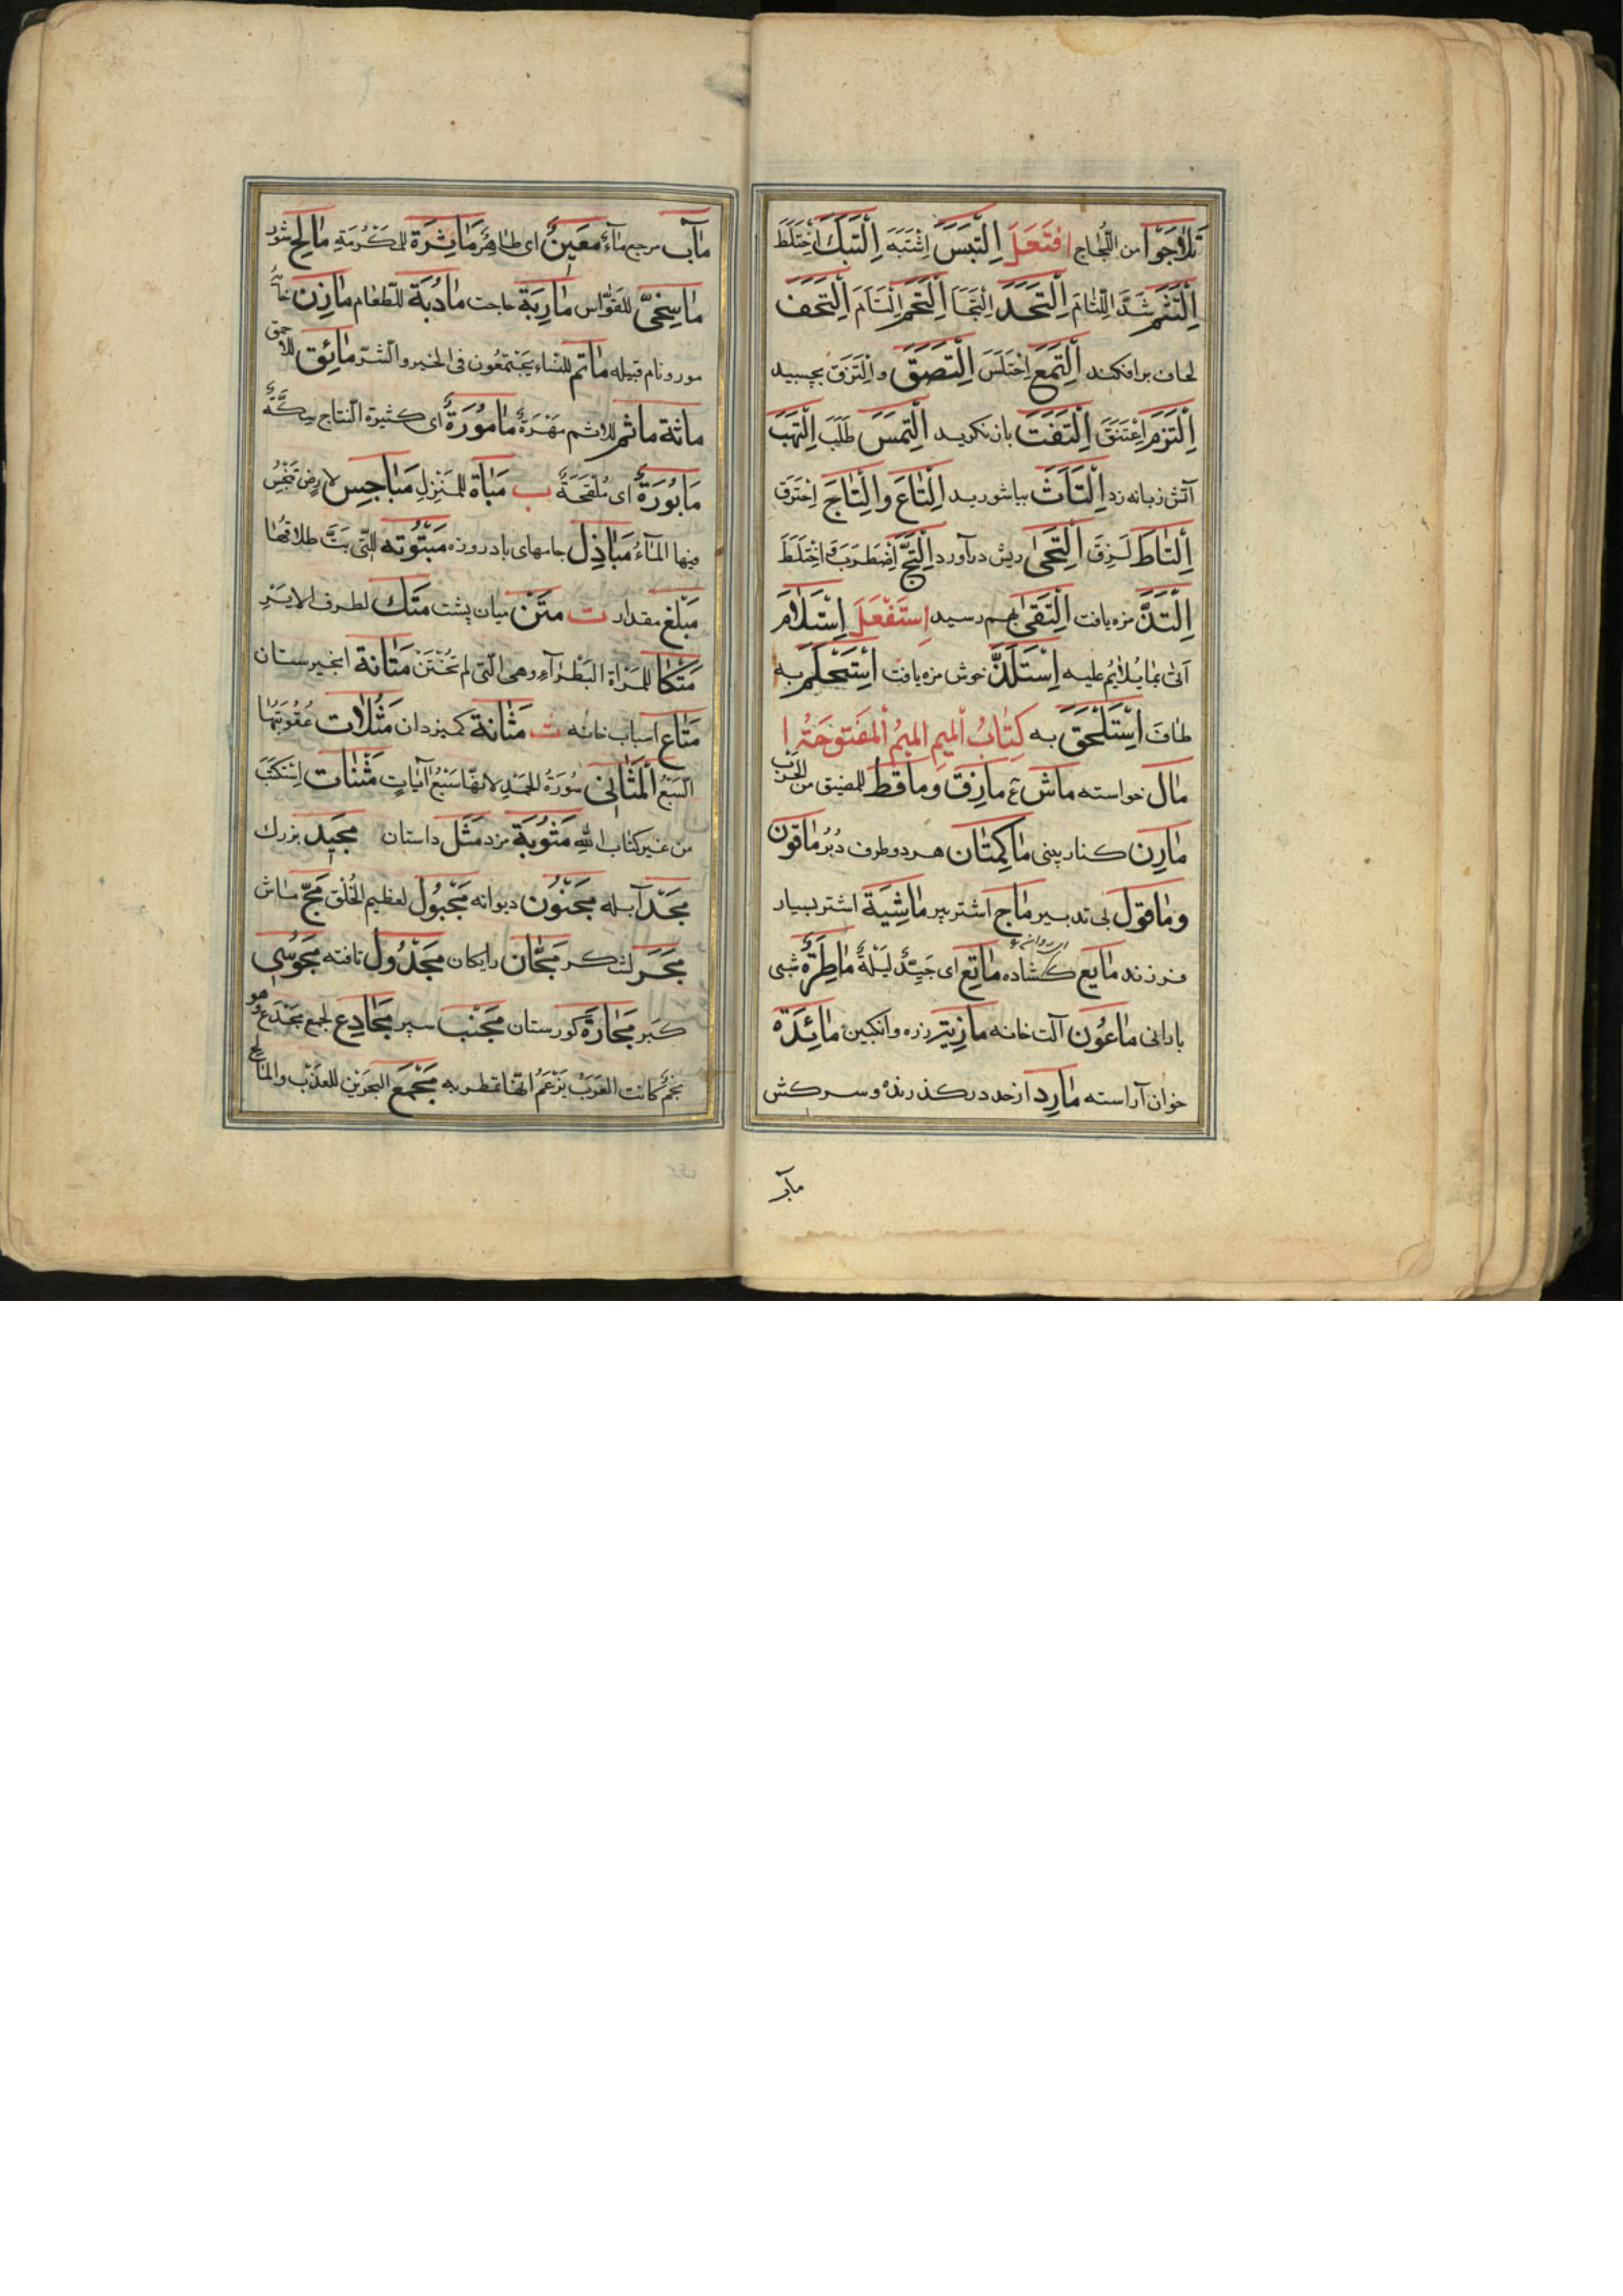 تَلَاجَوْا من اللِّجَاج افتَعَلَ اِلْتَبَسَ اِشْتَبَهَ اِلْتَبَكَ اِخْتَلَطَ
اِلْتَثَمَ شَدَّ اللِّثَامَ اِلْتَحَدَ اِلْتَجَأ اِلْتَحَمَ اِلْتَأمَ اِلْتَحَفَ
لحاف برافكند اِلْتَمَعَ اِخْتَلَسَ اِلْتَصَقَ و اِلْتَزَقَ بچسبيد
اِلْتَزَمَ اِعْتَنَقَ اِلْتَفَتَ بازنكريد اِلْتَمَسَ طَلَبَ اِلْتَهَبَ
آتش زبانه زد اِلْتَاثَ بياشوريد اِلْتَاعَ والْتَاجَ اِحْتَرَقَ
اِلْتَاطَ لَزِقَ اِلْتَحَى ريش درآورد اِلْتَجَّ اِضْطَرَبَ اِخْتَلَطَ
اِلْتَذَّ مزه يافت اِلْتَقَى بهم رسيد اِستَفْعَلَ اِسْتَلَامَ
اَتى بما يُلَايُم عليه اِسْتَلَذَّ خوش مزه يافت به
طاف اِسْتَلْحَقَ به كِتَابُ الميم الميمُ المفتوحَةُ ا
مال خواسته ماش ع مازِق وماقِط للمضيق من الحرب
مارِن كنار بينى ماكِمتَان هر دو طرف دُبُر ماقون
وماقول بى تدبير ماج اشتر پير ماشِيَة اشتر بسيار
فرزند مايع كشاده ماتِع اى جَيِّدٌ لَيْلَةٌ ماطِرَةٌ شبى
بارانى ماعُون آلت خانه زره وانكبين مائِدَة
خوان آراسته مارِد از حد دركذرنده و سركش
مآب
مآب مرجع مآءٌ مَعَينٌ اى ظاهرٌ مَاثِرَة للمَكْرُمَةِ مالِح شور
ماسِخِىّ للقَوَّاس مارِبَة حاجت مادُبَة للطّعام مازِن
مور و نام قبيله ماتم للنساء يَجْتَمِعُون فى الخير والشّرّ مائِق للاحمق
مائة ماثم للاثم مُهْرَةٌ مامُورَةٌ اى كثيرة النّتاج سِكَّةٌ
مَابُورَةٌ اى مُلْقَحَةٌ ب مَبَاة للمَنْزِل مَبَاجِس لارض تَنْبَجِسُ
فيها المآءُ مَبَاذِل جامهاى بادروزه مَبْتُوتَه الّتى بَتَّ طلاقُها
مَبْلَغ مقدار ت مَتْن ميان پشت مَتَك لطرف الايسر
مَتْكا للمرأة البَظْرآءِ وهى الّتى لم تُخْتَنْ مَتَانة انجيرستان
مَتَاع اسباب خانه ث مَثَانة كميزدان مَثُلَات عُقُوبَتها
السَبْعُ اَلْمَثَانِى سُورَةُ الحمدِ لانّها سَبْعُ آيَاتٍ مَثْنَات اِسْتَكْتَبَ
من غير كتاب الله مَثُوبَة مزد مَثَل داستان مَجِيد بزرك
آبله مَجْنُون ديوانه مَجْبُول لعظيم الخُلْق مَجّ ماش
مَجَر لشكر مَجَّان رايكان مَجْدُول تافته مَجُوسى
كبر كورستان مَجْنَب سپر مَجَادِع لجمع وهو
نجمٌ كانت العَرَبُ يَزْعَمُ انّها تمطر به مَجْمَعَ البحرَين للعَذْب والمَالح